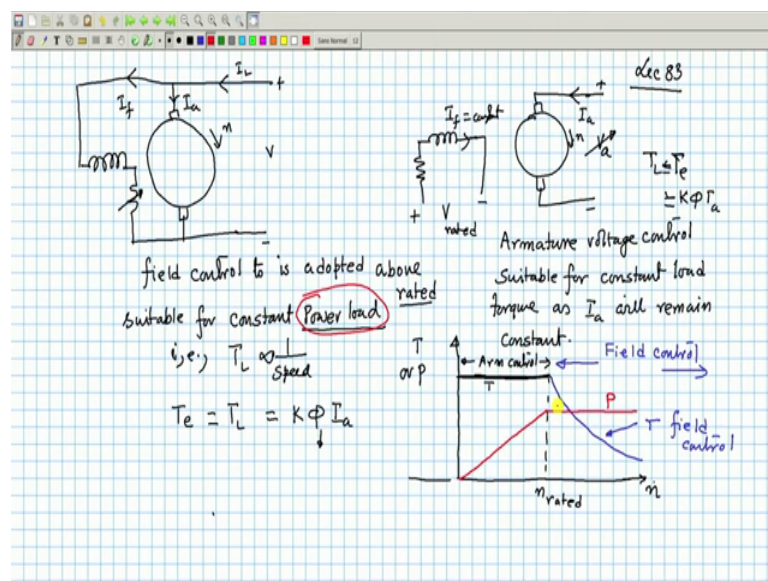 Sans Normal 12
Lec 83
I_L
+
I_f
I_a
n
V
-
I_f = const
+
V rated
-
+
I_a
n
V_a
-
T_L = T_e
= KΦI_a
field control to is adopted above
rated
suitable for constant Power load
i,e., T_L ∝ 1/speed
T_e = T_L = KΦI_a
↓
Armature voltage control
Suitable for constant load
torque as I_a will remain
Constant.
T
or P
Arm control
Field control
T
P
T field
control
n rated
n